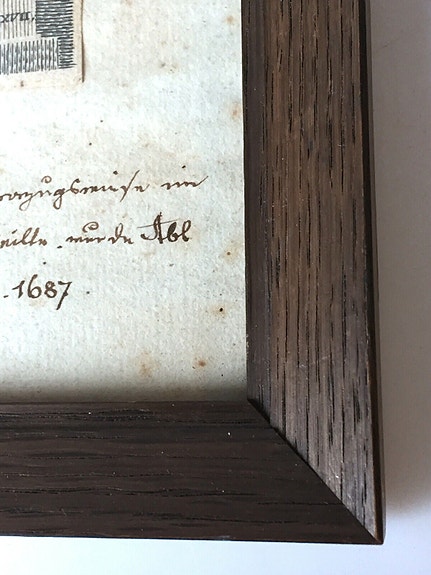 orzugsweise im
eilte, wurde Abl
1687